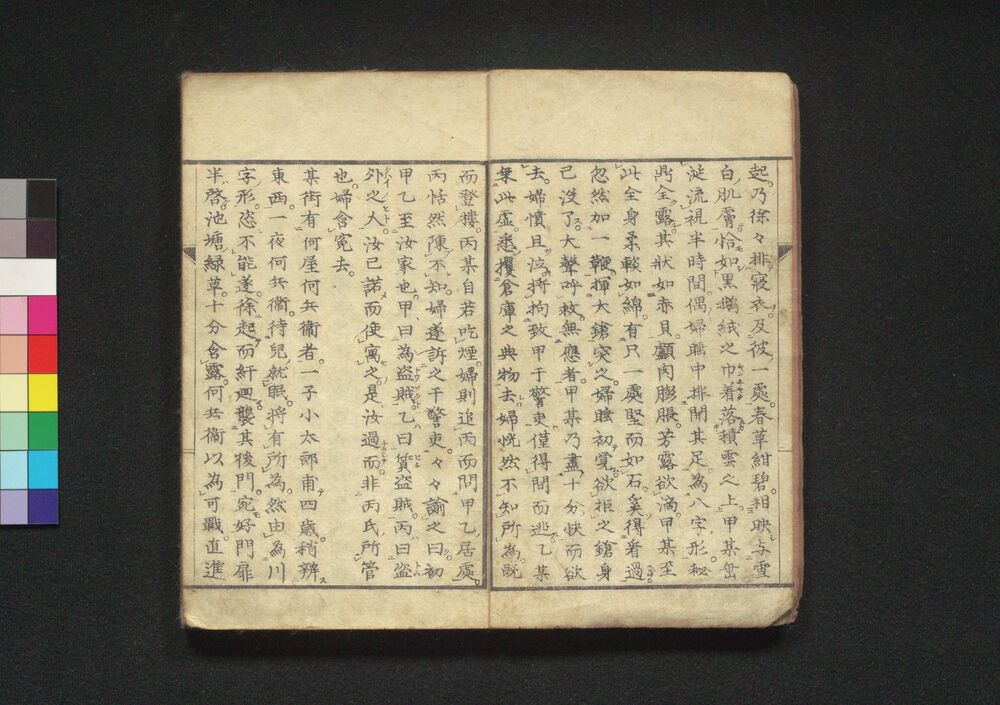 起。乃徐々排寢衣。及彼一處。春草紺碧。相映与雪
白肌膚恰如黒縐絨之巾着落積雪之上。甲某
涎流視半時間偶婦無中排開其足。為八字形。秘
全露。其狀如赤貝。顱肉膨脹。芳露欲滴。甲某至
此全身柔輭如綿。有只一處堅而如石。奚得看過
忽然加一鞭揮大鎗突之。婦睦初覚。欲拒之鎗身
已没了。大聲呼救無應者。甲某乃盡十分快而欲
去。婦憤且泣。將拘致甲于警吏僅得間而逃。乙某
乗此虚。悉攫倉庫之典物去。婦恍然不知所為。既
而登楼。丙某自若吃煙。婦則追丙而問甲乙居處。
丙恬然陳不知。婦遂訴之于警吏。々々諭之曰。初
甲乙至汝家也。甲曰為盗賊。乙曰質盗賊。丙曰盗
外之人。汝已諾而使寓之。是汝過而。非丙氏所管
也。婦含寃去。
某街有何屋何兵衞者。一子小太郎甫四歳稍辨
東西一夜何兵衞。待兒就眠。將有所為。然由為川
字形。恣不能遂。徐起而紆廻襲其後門。宛好門扉
半啓。池塘緑草十分含露。何兵衞以為可戰。直進